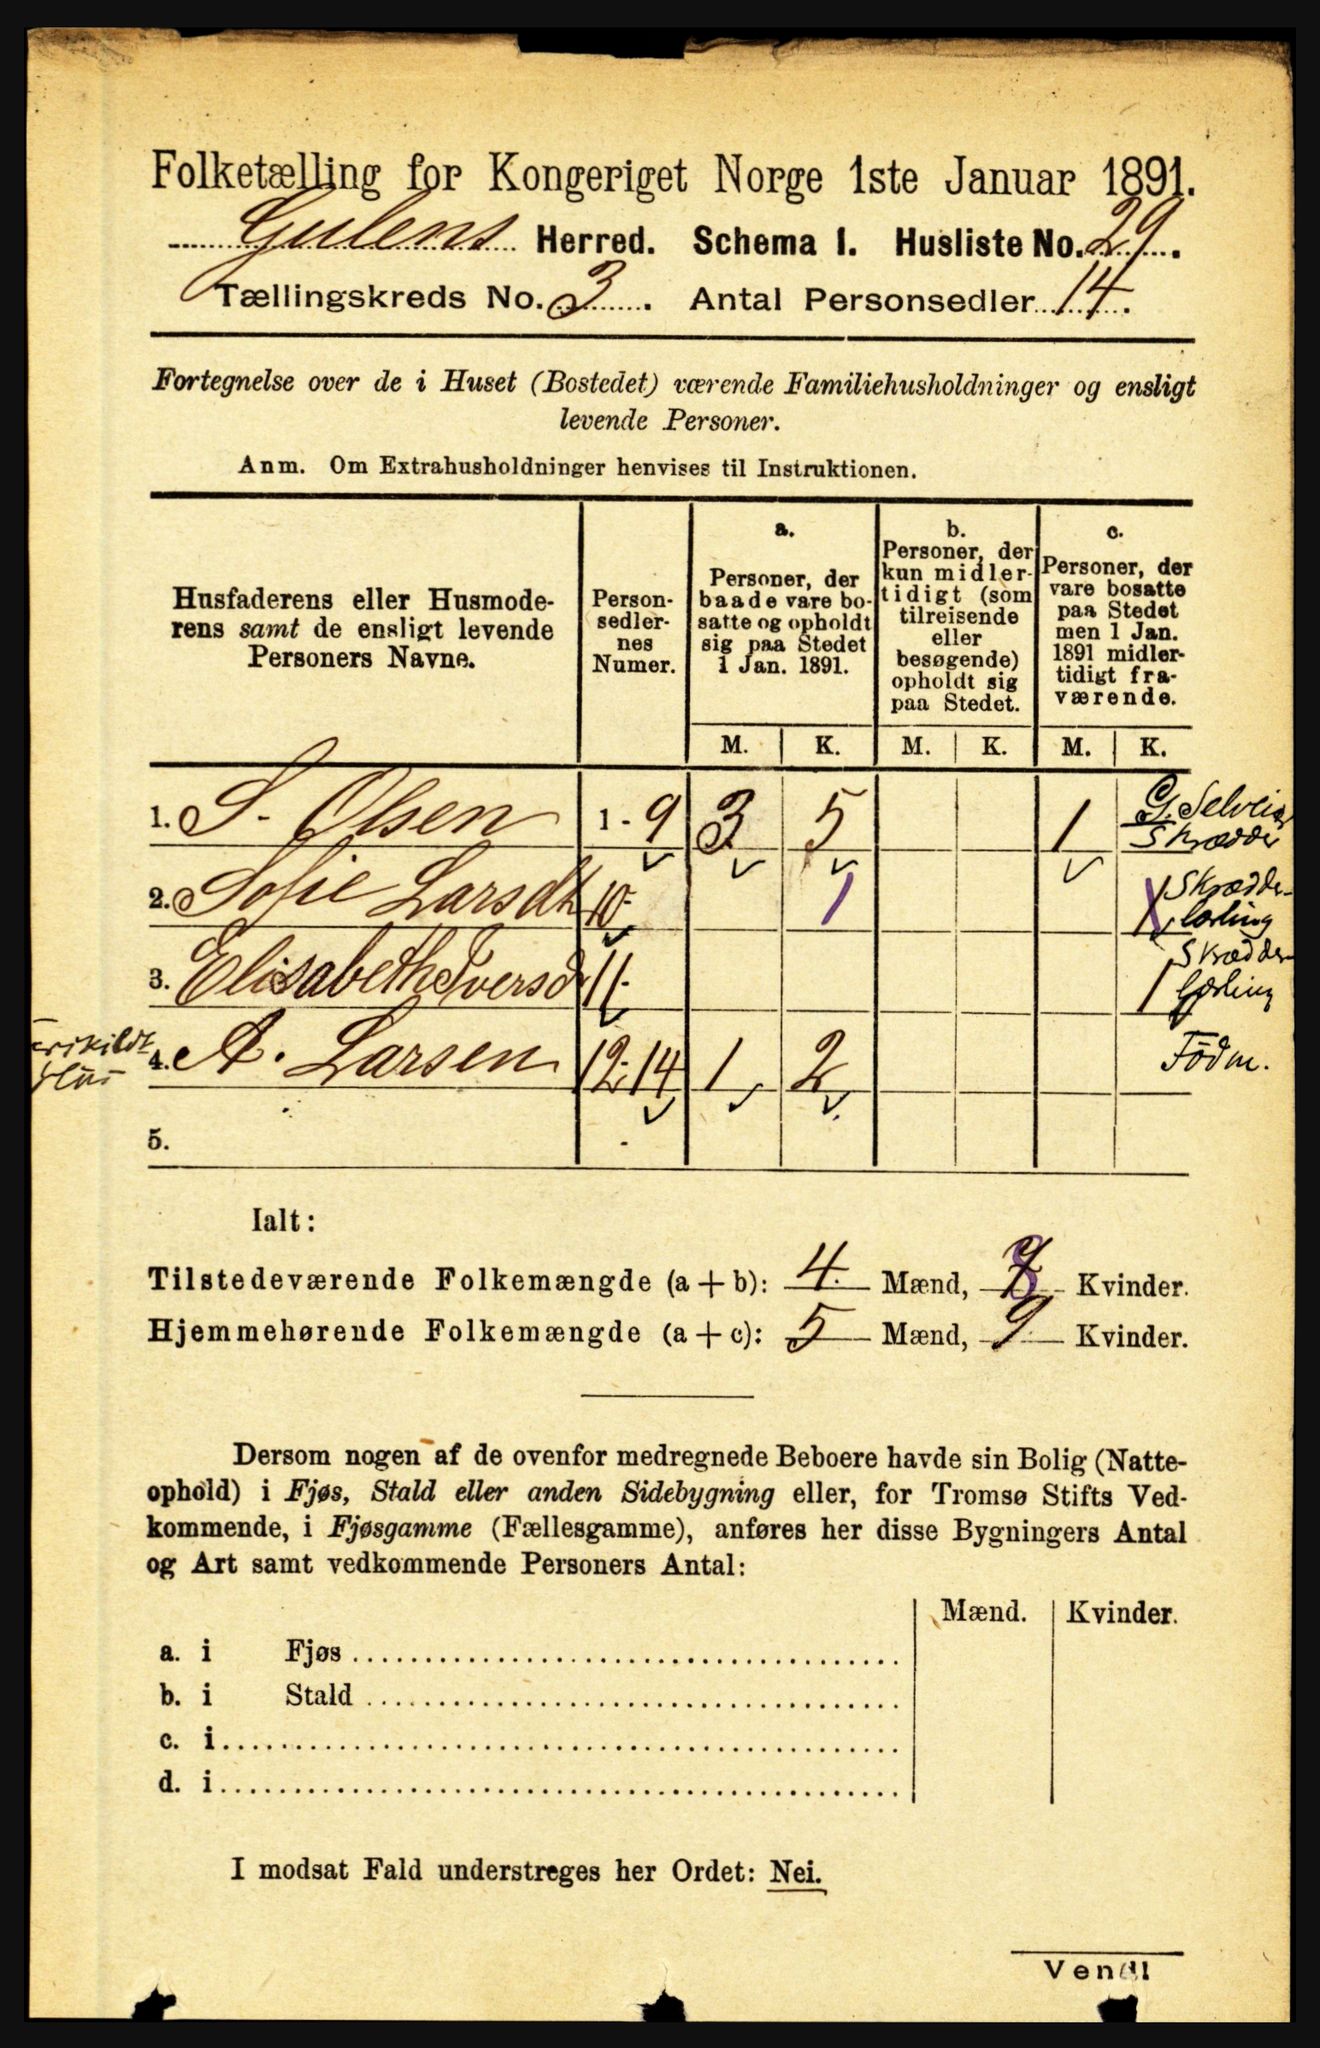 Folketælling for Kongeriget Norge 1ste Januar 1891.
Gulens Herred. Schema I. Husliste No. 29.
Tællingskreds No. 3. Antal Personsedler 14.
Fortegnelse over de i Huset (Bostedet) værende Familiehusholdninger og ensligt
levende Personer.
Anm. Om Extrahusholdninger henvises til Instruktionen.
Husfaderens eller Husmode-
rens samt de ensligt levende
Personers Navne.
Person-
sedler-
nes
Numer.
a.
Personer, der
baade vare bo-
satte og opholdt
sig paa Stedet
1 Jan. 1891.
b.
Personer, der
kun midler-
tidigt (som
tilreisende
eller
besøgende)
opholdt sig
paa Stedet.
c.
Personer, der
vare bosatte
paa Stedet
men 1 Jan.
1891 midler-
tidigt fra-
værende.
M. K. M. K. M. K.
1. S. Olsen 1 - 9 3 5 1 G. Selveier
Skrædder
2. Sofie Larsdt 10 1 1 Skrædder-
lærling
3. Elisabeth Iversd 11 1 Skrædder-
lærling
4. A. Larsen 12-14 1 2 Födm.
Hus
5.
Ialt:
Tilstedeværende Folkemængde (a + b): 4 Mænd, 8 Kvinder.
Hjemmehørende Folkemængde (a + c): 5 Mænd, 9 Kvinder.
Dersom nogen af de ovenfor medregnede Beboere havde sin Bolig (Natte-
ophold) i Fjøs, Stald eller anden Sidebygning eller, for Tromsø Stifts Ved-
kommende, i Fjøsgamme (Fællesgamme), anføres her disse Bygningers Antal
og Art samt vedkommende Personers Antal:
Mænd. Kvinder.
a. i Fjøs
b. i Stald
c. i
d. i
I modsat Fald understreges her Ordet: Nei.
Vend!